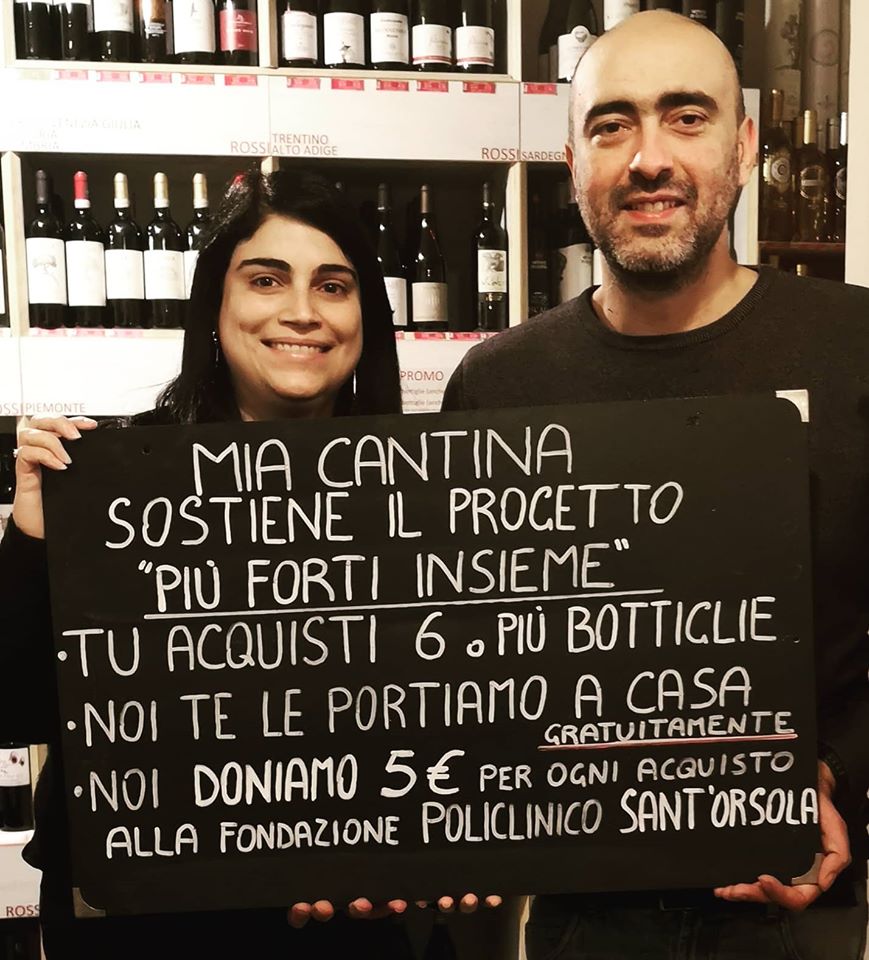 VENEZIA GIULIA
ROSSI
TRENTINO
ALTO ADIGE
ROSSI SARDEGN
PROMO
OSSI PIEMONTE
MIA CANTINA
SOSTIENE IL PROGETTO
"PIÙ FORTI INSIEME"
• TU ACQUISTI 6 o PIÙ BOTTIGLIE
• NOI TE LE PORTIAMO A CASA
GRATUITAMENTE
• NOI DONIAMO 5€ PER OGNI ACQUISTO
ALLA FONDAZIONE POLICLINICO SANT'ORSOLA
ROSS